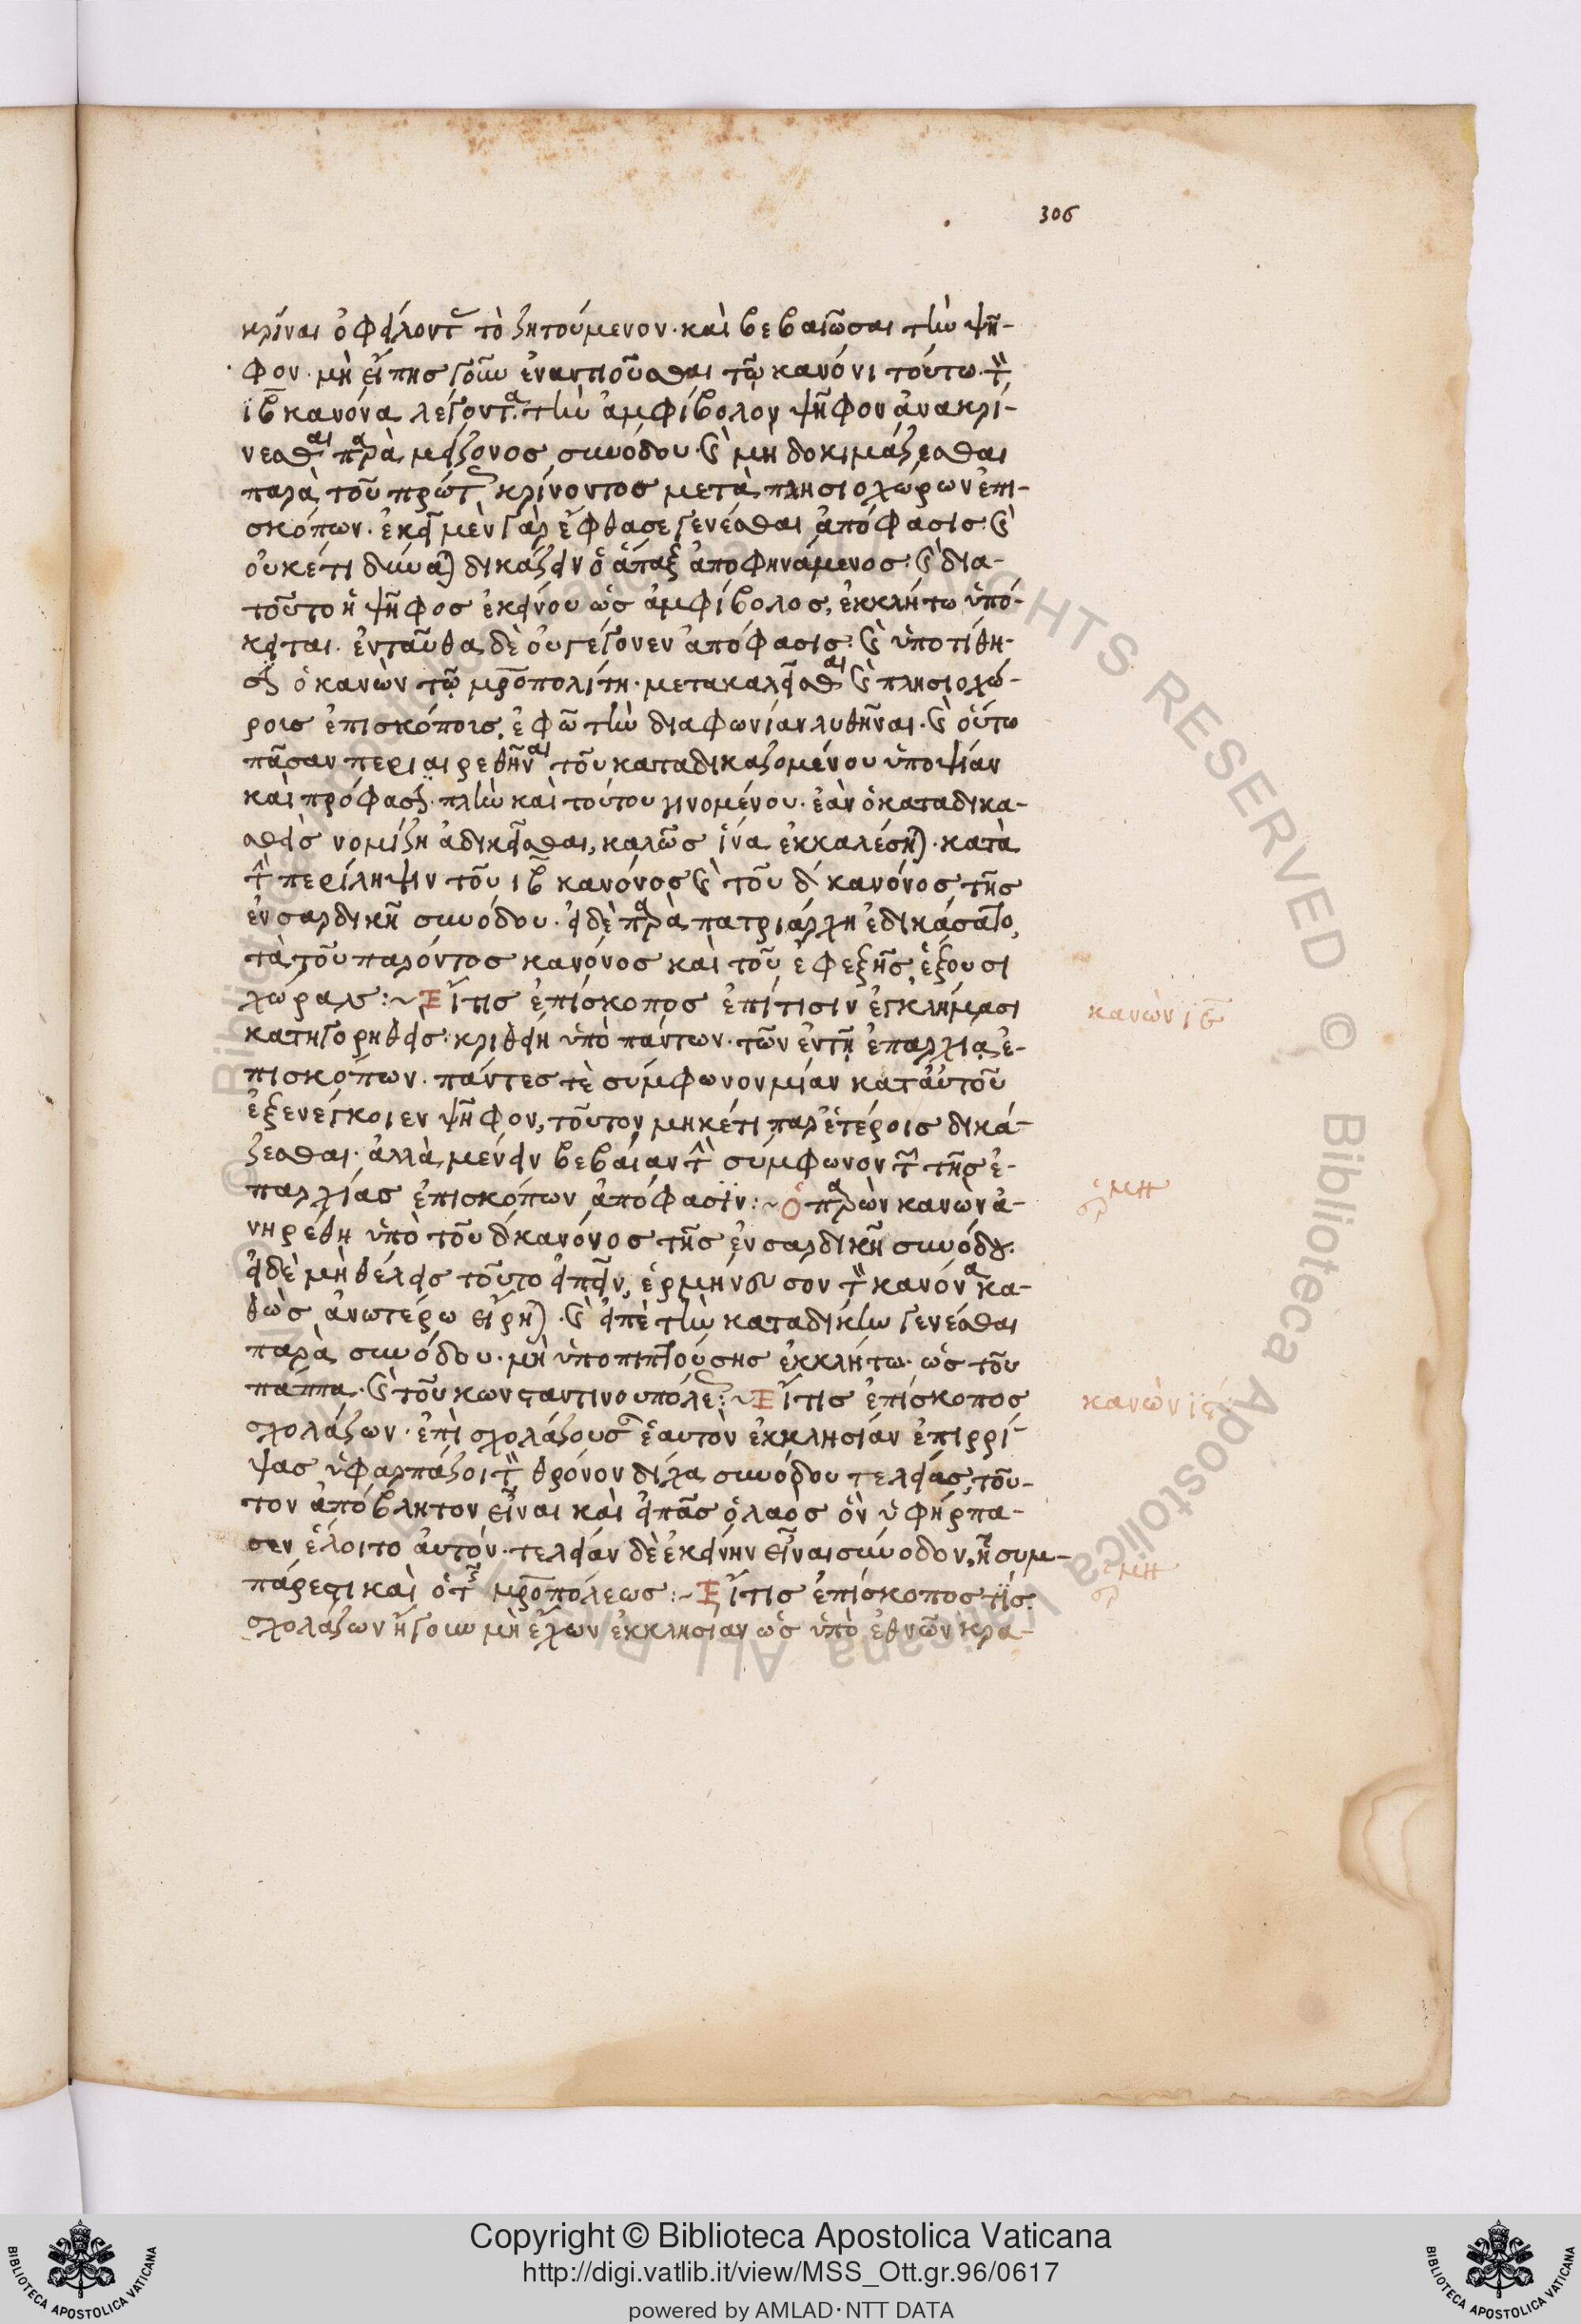 306
κρίναι ὀφείλοντ(ας) τὸ ζητούμενον· καὶ βεβαιῶσαι τὴν ψῆ-
φον· μὴ εἴπης γοῦν ἐναντιοῦσθαι τῶ κανόνι τούτω· τὸν
ιβ κανόνα λέγοντα· τὴν ἀμφίβολον ψῆφον ἀνακρί-
νεσθαι παρὰ μείζονος συνόδου· καὶ μὴ δοκιμάζεσθαι
παρὰ τοῦ πρώτως κρίνοντος μετὰ πλησιοχώρων ἐπι-
σκόπων· ἐκεῖ μὲν γὰρ ἔφθασε γενέσθαι ἀπόφασις· καὶ
οὐκέτι δύναται δικάζειν ὁ ἅπαξ ἀποφηνάμενος· καὶ δια-
τοῦτο ἡ ψῆφος ἐκείνου ὡς ἀμφίβολος, ἐκκλήτω ὑπό-
κειται· ἐνταῦθα δὲ οὐ γέγονεν ἀπόφασις· καὶ ὑποτίθη-
σιν ὁ κανὼν τῶ μητροπολίτη· μετακαλεῖσθαι καὶ πλησιοχώ-
ροις ἐπισκόποις, ἐφῶ τὴν διαφωνίαν λυθῆναι· καὶ οὕτω
πᾶσαν περιαιρεθῆναι τοῦ καταδικαζομένου ὑποψίαν
καὶ πρόφασιν· πλὴν καὶ τούτου γινομένου· ἐὰν ὁ καταδικα-
σθεὶς νομίζη ἀδικεῖσθαι, καλῶς ἵνα ἐκκαλέσηται· κατὰ
τὴν περίληψιν τοῦ ιβ κανόνος καὶ τοῦ δ κανόνος τῆς
ἐν σαρδικῆ συνόδου· εἰ δὲ παρὰ πατριάρχη ἐδικάσατο,
τὰ τοῦ παρόντος κανόνος καὶ τοῦ ἐφεξῆς, ἕξουσι
χώραν :~ Εἴτις ἐπίσκοπος ἐπί τισιν ἐγκλήμασι
κανὼν ιε
κατηγορηθεὶς· κριθείη ὑπὸ πάντων· τῶν ἐν τῆ ἐπαρχία ἐ-
πισκόπων· πάντες τὲ σύμφωνον μίαν κατ' αὐτοῦ
ἐξενέγκοιεν ψῆφον, τοῦτον μηκέτι παρ' ἑτέροις δικά-
ζεσθαι· ἀλλὰ μένειν βεβαίαν τὴν σύμφωνον τῶν τῆς ἐ-
παρχίας ἐπισκόπων ἀπόφασϊν :~ Ὁ παρὼν κανὼν ἀ-
ἑρμη
νηρέθη ὑπὸ τοῦ δ κανόνος τῆς ἐν σαρδικῆ συνόδου·
εἰ δὲ μὴ θέλεις τοῦτο εἰπεῖν, ἑρμήνευσον τὸν κανόνα κα-
θὼς ἀνωτέρω εἴρηται· καὶ εἰπὲ τὴν καταδίκην γενέσθαι
παρὰ συνόδου· μὴ ὑποπιπτούσης ἐκκλήτω· ὡς τοῦ
πάππα· καὶ τοῦ κωνσταντινουπόλεως :~ Εἴτις ἐπίσκοπος
κανὼν ις
σχολάζων· ἐπὶ σχολάζουσαν ἑαυτὸν ἐκκλησίαν ἐπιρρί-
ψας ὑφαρπάζοι τὸν θρόνον δίχα συνόδου τελείας, τοῦ-
τον ἀπόβλητον εἶναι καὶ εἰ πᾶς ὁ λαὸς ὃν ὑφήρπα-
σεν ἕλοιτο αὐτόν· τελείαν δὲ ἐκείνην εἶναι σύνοδον, ἧ συμ-
πάρεστι καὶ ὁ τῆς μητροπόλεως :~ Εἴτις ἐπίσκοπός τις
ἑρμη
σχολάζων ἤγουν μὴ ἔχων ἐκκλησίαν ὡς ὑπὸ ἐθνῶν κρα-
Copyright © Biblioteca Apostolica Vaticana
http://digi.vatlib.it/view/MSS_Ott.gr.96/0617
powered by AMLAD·NTT DATA
BIBLIOTECA APOSTOLICA VATICANA
BIBLIOTECA APOSTOLICA VATICANA